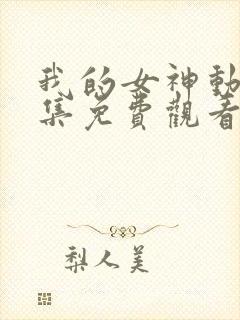 我的女神動
集免費觀看
梨人美